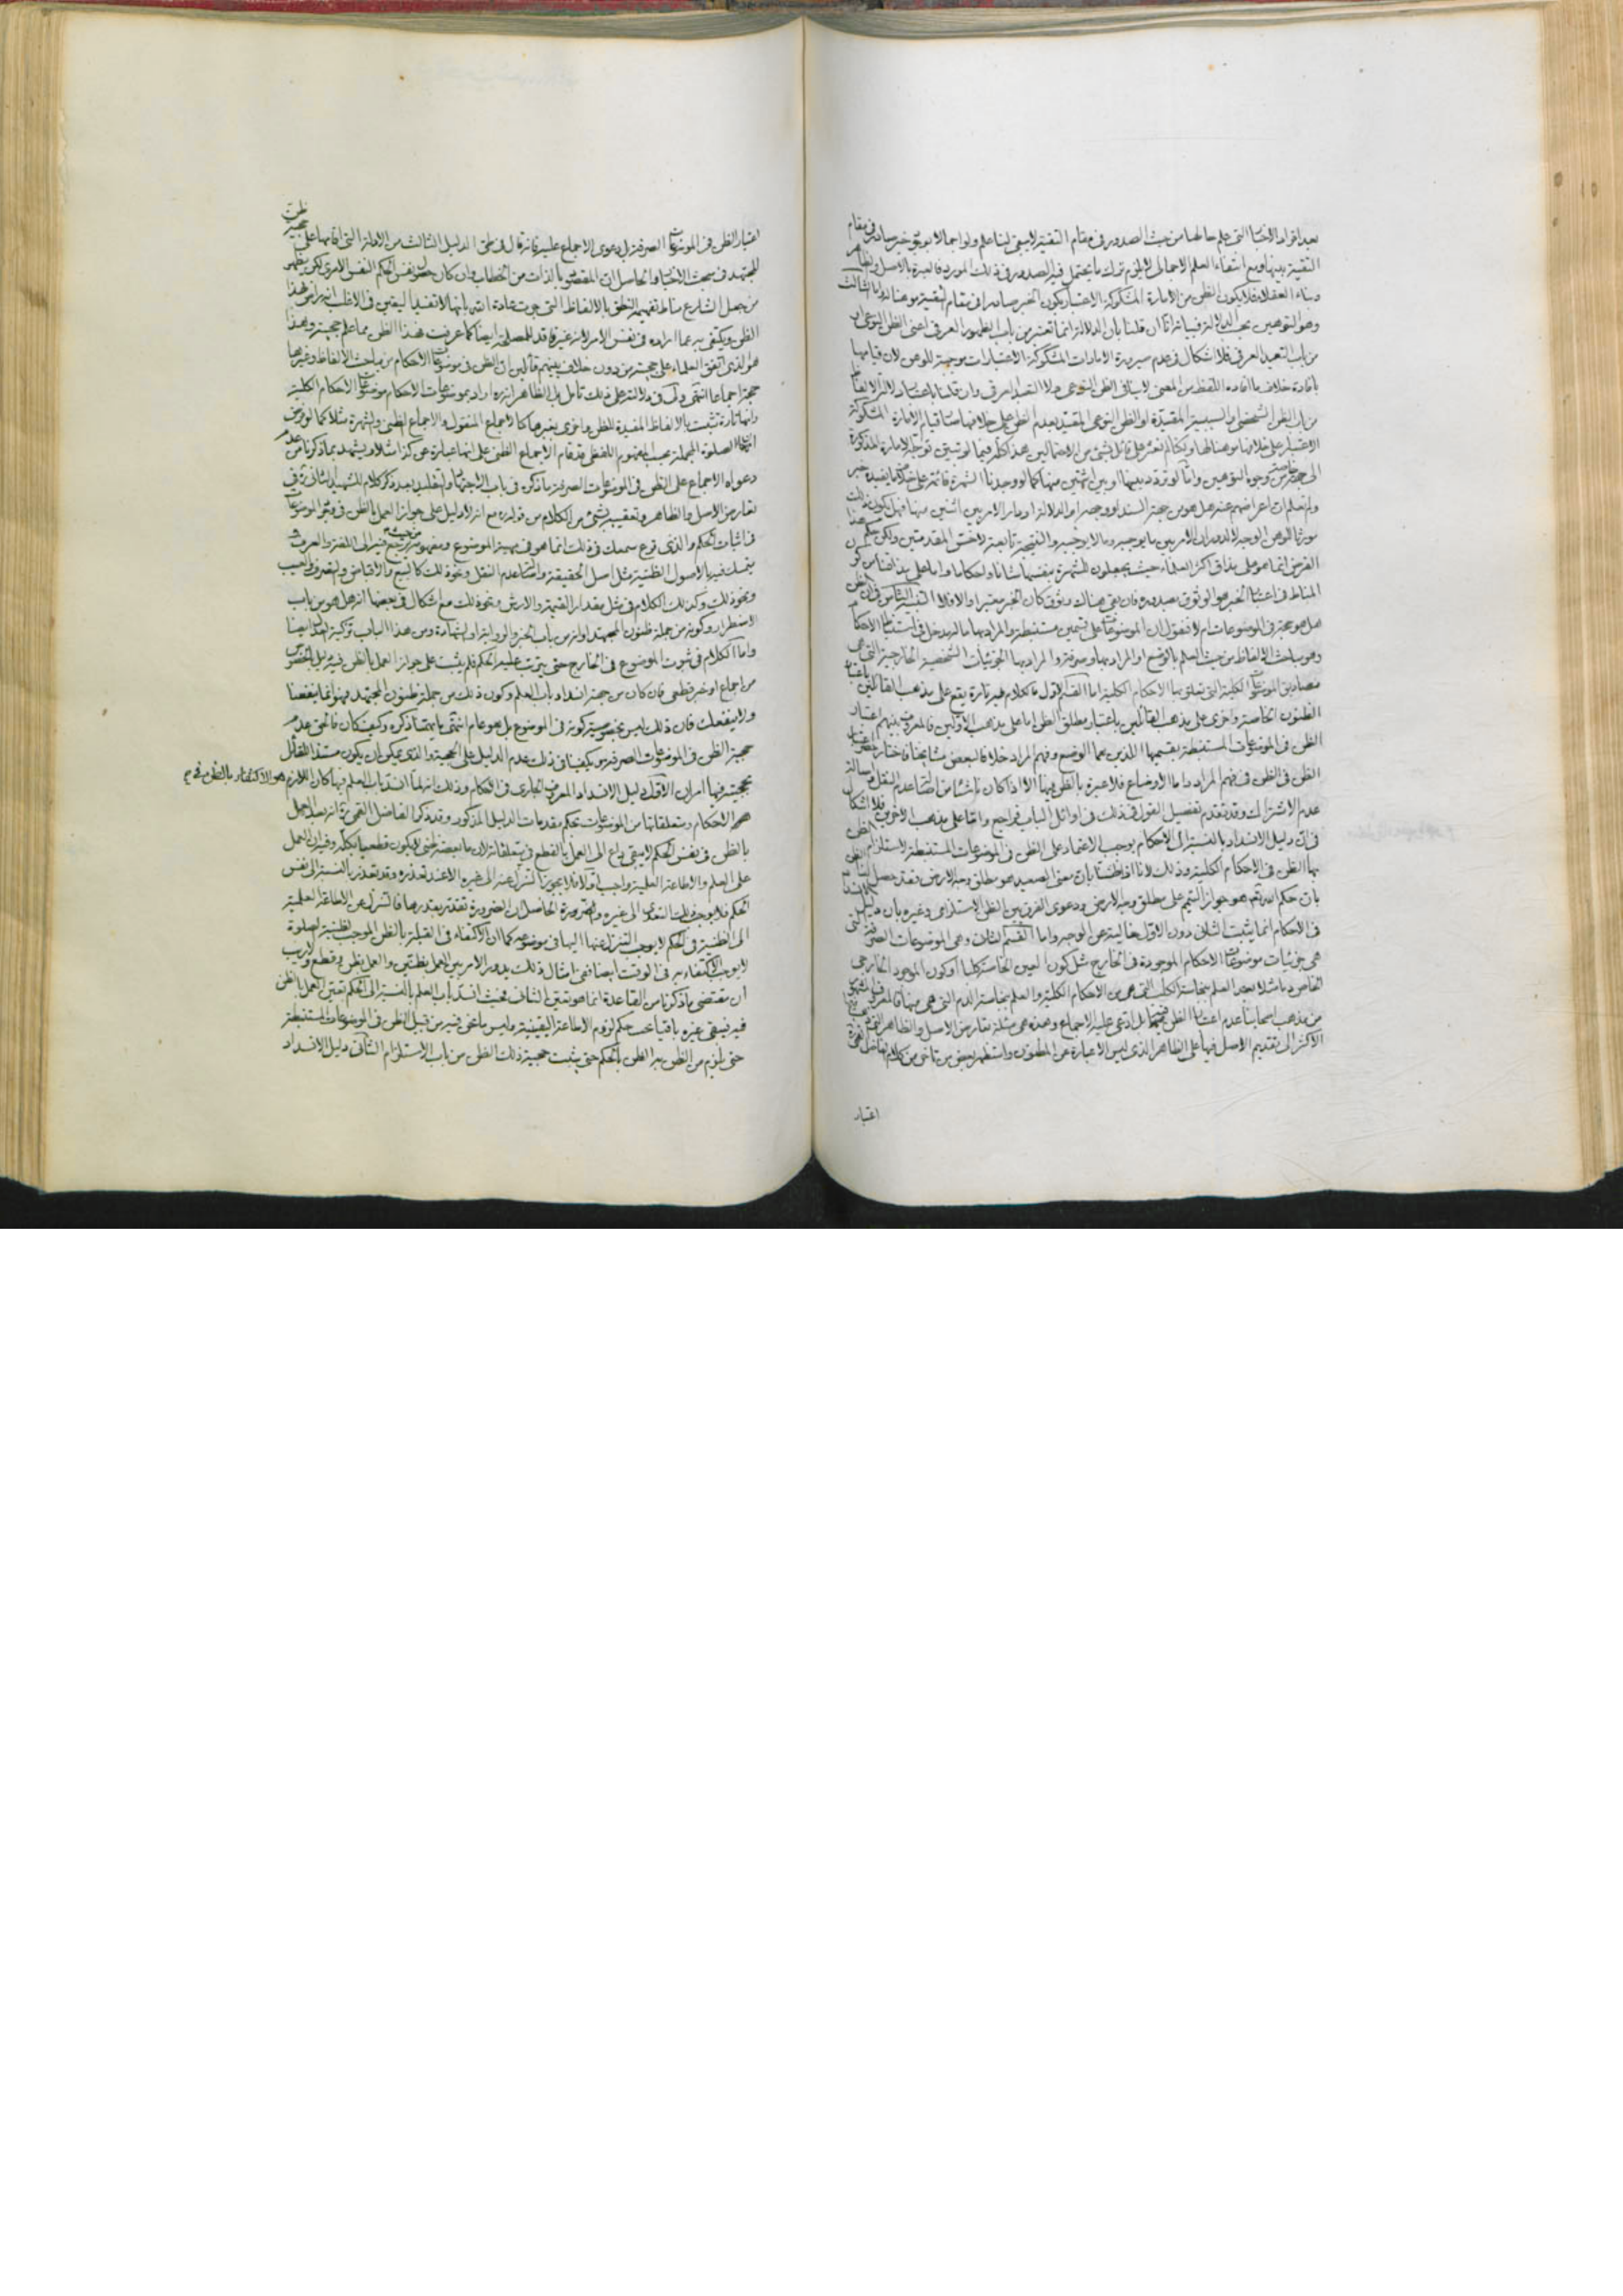 بعد افراد الاخبار التي علم حالها من حيث الصدور في مقام التقية لا يبقى لنا علم ولو اجمالا بوجود خبر صادر في مقام
التقية بينها ومع انتفاء العلم الاجمالي لا يلزم ترك ما يحتمل فيه الصدور في ذلك المورد فالعبرة بالاصل وظاهر
وبناء العقلاء فلا يكون الظن من الامارة المشكوكة الاعتبار بكون الخبر صادرا في مقام التقية موهنا له واما الثالث
وهو التوهين بحسب الدلالة فبيانه انا ان قلنا بان الدلالة انما تعتبر من باب الظهور العرفي اعني الظن النوعي او
من باب التعبد العرفي فلا اشكال في عدم صيرورة الامارات المشكوكة الاعتبارات موجبة للوهن لان قيامها
بافادة خلاف ما افاده اللفظ من المعنى لا ينافي الظن النوعي ولا التعبد العرفي وان قلنا باعتبار دلالة الالفاظ
من باب الظن الشخصي والسببية المقيدة او الظن النوعي المقيد بعدم الظن على خلافها
الاعتبار على خلافها موهنا لها ولكنا لم نعثر على قائل بشيء من الاحتمالين هذا كله فيما لو تبين توجه الامارة المذكورة
الى جهة خاصة من وجوه التوهين واما لو تردد بينها او بين اثنتين منها كما لو وجدنا الشهرة قائمة على خلاف ما يفيده خبر
ولم نعلم ان اعراضهم عنه هل هو من جهة السند او وجهه او الدلالة او دار الامر بين اثنين منها فهل يكون ذلك
مورثا للوهن الوجه لا لدوران الامر بين ما يوجبه وما لا يوجبه والنتيجة تابعة لاخس المقدمتين ولكن
الفرض انما هو على مذاق اكثر العلماء حيث يجعلون للشهرة بنفسها شانا واحكاما واما على مذاقنا من كون
المناط في اعتبار الخبر هو الوثوق بصدوره فان بقي هناك وثوق كان الخبر معتبرا والا فلا التنبيه الثامن في ان الظن
هل هو حجة في الموضوعات ام لا فنقول ان الموضوعات على قسمين مستنبطة والمراد بها ما له دخل في استنباط الاحكام
وهو مباحث الالفاظ من حيث العلم بالوضع او المراد بها وصرفة والمراد بها الجزئيات الشخصية الخارجية التي هي
مصاديق الموضوعات الكلية التي تعلق بها الاحكام الكلية اما القسم الاول فالكلام فيه تارة يقع على مذهب القائلين باعتبار
الظنون الخاصة واخرى على مذهب القائلين باعتبار مطلق الظن اما على مذهب الاولين فالمعروف بينهم اعتبار
الظن في الموضوعات المستنبطة بقسميها اللذين هما الوضع وفهم المراد خلافا لبعض مشايخنا فاختار اعتبار
الظن في الظن في فهم المراد واما الاوضاع فلا عبرة بالظن فيها الا اذا كان ناشئا من اصالة عدم النقل واصالة
عدم الاشتراك وقد تقدم تفصيل القول في ذلك في اوائل الباب فراجع واما على مذهب الاخرين فلا اشكال
في ان دليل الانسداد بالنسبة الى الاحكام يوجب الاعتماد على الظن في الموضوعات المستنبطة لاستلزام الظن
بها الظن في الاحكام الكلية وذلك لانا اذا ظننا بان معنى الصعيد هو مطلق وجه الارض فقد حصل لنا الظن
بان حكم الله هو جواز التيمم على مطلق وجه الارض ودعوى الفرق بين الظن الاستلزامي وغيره بان دليل الانسداد
في الاحكام انما يثبت الثاني دون الاول خالية عن الوجه واما القسم الثاني وهي الموضوعات الصرفة التي
هي جزئيات موضوعات الاحكام الموجودة في الخارج مثل كون العين الخاصة كلبا او كون الموجود الخارجي
الخاص دما مثلا بعد العلم بنجاسة الكلب التي هي من الاحكام الكلية والعلم بنجاسة الدم التي هي منها فالمعروف المشهور
من مذهب اصحابنا عدم اعتبار الظن فيها بل ادعي عليه الاجماع وهذه هي مسئلة تعارض الاصل والظاهر
الاكثر الى تقديم الاصل فيها على الظاهر الذي ليس الا عبارة عن المظنون واستظهر بعض من تاخر من كلام الفاضل القمي
اعتبار
اعتبار الظن في الموضوعات الصرفة بل دعوى الاجماع عليه فانه قال في طي الدليل الثالث من الادلة التي اقامها على حجية ظن
المجتهد في مبحث الاخبار والحاصل ان المقصود بالذات من الخطاب وان كان حصول نفس الحكم النفس الامري لكن يظهر
من جعل الشارع مناط تفهيمه النطق بالالفاظ التي جرت عادة الله بانها لا تفيد اليقين في الاغلب انه راض بهذا
الظن ويكتفي به عما اراده في نفس الامر لانه غير فاقد للمصلحة ايضا كما عرفت فهذا الظن مما علم حجيته وهذا
هو الذي اتفق العلماء على حجيته من دون خلاف بينهم قائلين ان الظن في موضوعات الاحكام من مباحث الالفاظ وغيرها
حجة اجماعا انتهى ولك في دلالته على ذلك تامل بل الظاهر انه اراد بموضوعات الاحكام موضوعات الاحكام الكلية
وانها تارة تثبت بالالفاظ المفيدة للظن واخرى بغيرها كالاجماع المنقول والاجماع الظني والشهرة مثلا كما لو فرض
الصلوة المجملة بحسب المفهوم اللفظي فقد قام الاجماع الظني على انها عبارة عن كذا مثلا ويشهد بما ذكرنا من عدم
دعواه الاجماع على الظن في الموضوعات الصرفة ما ذكره في باب الاجتهاد والتقليد بعد ذكر كلام للشهيد الثاني في
تعارض الاصل والظاهر وتعقيبه بشيء من الكلام من قوله مع انه لا دليل على جواز العمل بالظن في الموضوعات
في اثبات الحكم والذي قرع سمعك في ذلك انما هو في مهية الموضوع ومفهومه من حيث يرجع فيه الى اللغة والعرف و
يتمسك فيه بالاصول الظنية مثل اصل الحقيقة واصالة عدم النقل ونحو ذلك كالبيع والاقباض والتصرف والعيب
ونحو ذلك وكذلك الكلام في مثل مقدار القيمة والارش ونحو ذلك مع اشكال في بعضها انه هل هو من باب
الاضطرار وكونه من جملة ظنون المجتهد او انه من باب الخبر والرواية او الشهادة ومن هذا الباب تزكية العدل ايضا
واما الكلام في ثبوت الموضوع في الخارج حتى يترتب عليه الحكم فلم يثبت على جواز العمل بالظن فيه دليل بالخصوص
من اجماع او خبر قطعي فان كان من جهة انسداد باب العلم وكون ذلك من جملة ظنون المجتهد فهو انما ينفعنا
ولا ينفعك فان ذلك ليس بخصوصية كونه في الموضوع بل هو عام انتهى ما يهمنا ذكره وكيف كان فالحق عدم
حجية الظن في الموضوعات الصرفة ويكفينا في ذلك عدم الدليل على الحجية والذي يمكن ان يكون مستند القائل
بحجيته فيها امران الاول دليل الانسداد المعروف الجاري في الاحكام وذلك انه لما انسد باب العلم فيها كان اللازم هو الاكتفاء بالظن في
الاحكام ومتعلقاتها من الموضوعات بحكم مقدمات الدليل المذكور وقد ذكر الفاضل القمي انه بعد العمل
بالظن في نفس الحكم لا يبقى داع الى العمل بالقطع في متعلقاته لان ما بعضه ظني لا يكون قطعيا بكله وفيه ان العمل
على العلم والاطاعة العلمية واجب اولا فلا يجوز التنزل عنه الى غيره الا عند تعذره وقد تعذر بالنسبة الى نفس
الحكم فلا يوجب ذلك التعدي الى غيره والضرورة الحاصل ان الضرورة تتقدر بقدرها فالتنزل عن الاطاعة العلمية
الى الظنية في الحكم لا يوجب التنزل عنها اليها في موضوعه كما ان الاكتفاء في القبلة بالظن الموجب لظنية الصلوة
لا يوجب الاكتفاء به في الوقت ايضا ففي امثال ذلك يدور الامر بين العمل بظنين والعمل بظن وقطع ولا ريب
ان مقتضى ما ذكرنا من القاعدة انما هو تعين الثاني فحيث انسد باب العلم بالنسبة الى الحكم تعين العمل بالظن
فيه فيبقى غيره باقيا تحت حكم لزوم الاطاعة اليقينية وليس ما نحن فيه من قبيل الظن في الموضوعات المستنبطة
حتى يلزم من الظن به الظن بالحكم حتى يثبت حجية ذلك الظن من باب الاستلزام الثاني دليل الانسداد